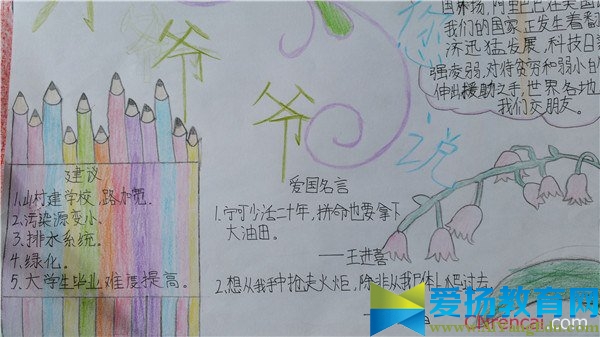 爷
爷
说
阿里巴巴在美国
我们的国家,正发生着翻
济迅猛发展,科技日
强凌弱,对待贫穷和弱小
伸出援助之手,世界各地
我们交朋友。
建议
1.山村建学校,路加宽。
2.污染源变小。
3.排水系统。
4.绿化。
5.大学生毕业难度提高。
爱国名言
1.宁可少活二十年,拼命也要拿下
大油田。
——王进喜
2.想从我手中抢走火炬,除非从我尸体上
过去
爱扬教育网
CNrencai.com